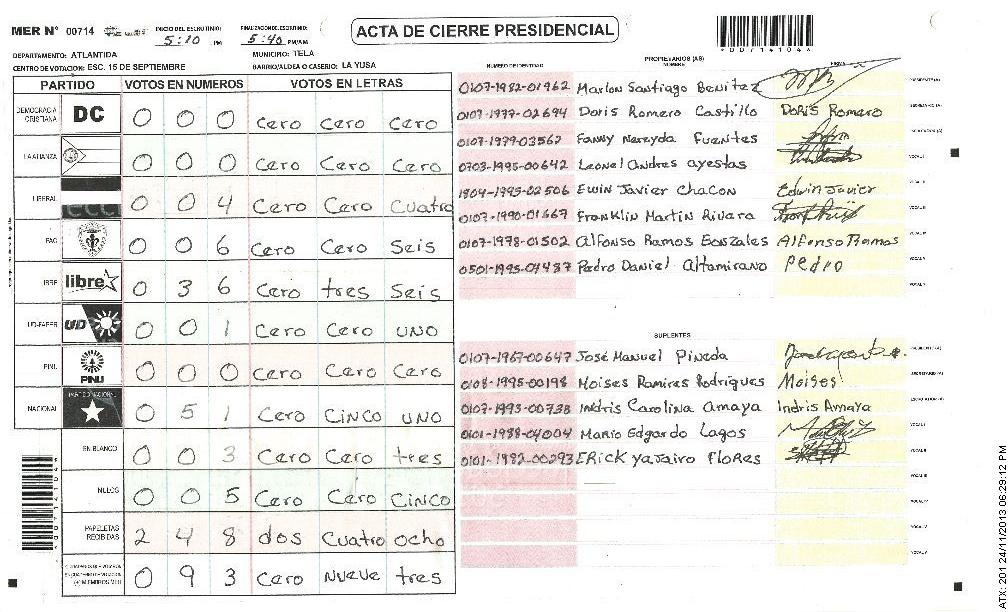 MER Nº 00714
INICIO DEL ESCRUTINIO: 5:20 PM
FINALIZACION DEL ESCRUTINIO: 5:40 PM/AM
ACTA DE CIERRE PRESIDENCIAL
DEPARTAMENTO: ATLANTIDA MUNICIPIO: TELA
CENTRO DE VOTACION: ESC. 15 DE SEPTIEMBRE BARRIO/ALDEA O CASERIO: LA YUSA
PARTIDO VOTOS EN NUMEROS VOTOS EN LETRAS
DEMOCRACIA CRISTIANA DC 0 0 0 Cero Cero Cero
LA ALIANZA 0 0 0 Cero Cero Cero
LIBERAL 0 0 4 Cero Cero Cuatro
PAC 0 0 6 Cero Cero Seis
LIBRE libre 0 3 6 Cero tres Seis
UD-FAPER UD 0 0 1 Cero Cero UNO
PINU PINU 0 0 0 Cero Cero Cero
NACIONAL PARTIDO NACIONAL 0 5 1 Cero CINCO UNO
EN BLANCO 0 0 3 Cero Cero tres
NULOS 0 0 5 Cero Cero CINCO
PAPELETAS RECIBIDAS 2 4 8 dos Cuatro Ocho
0 9 3 Cero NUEVE tres
PROPIETARIOS (AS)
NUMERO DE IDENTIDAD NOMBRE FIRMA
0107-1982-01962 Marlon Santiago Benitez PRESIDENTE (A)
0107-1977-02694 Doris Romero Castillo Doris Romero SECRETARIO (A)
0107-1979-03562 Fanny Nereyda Fuentes ESCRUTADOR (A)
0703-1995-00642 Leonel Andres ayestas VOCAL I
1804-1995-02506 Ewin Javier Chacon Edwin Javier VOCAL II
0107-1990-01667 Franklin Martin Rivara VOCAL III
0107-1978-01502 Alfonso Ramos Gonzales Alfonso Ramos VOCAL IV
0501-1995-04487 Pedro Daniel Altamirano Pedro VOCAL V
SUPLENTES
0107-1967-00647 José Manuel Pineda PRESIDENTE (A)
0108-1995-00198 Moises Ramires Rodrigues Moises SECRETARIO (A)
0107-1993-00738 Indris Carolina Amaya Indris Amaya ESCRUTADOR (A)
0101-1988-04004 Mario Edgardo Lagos VOCAL I
0101-1982-00293 ERICK yajairo Flores VOCAL II
ATX: 201 24/11/2013 06:29:12 PM